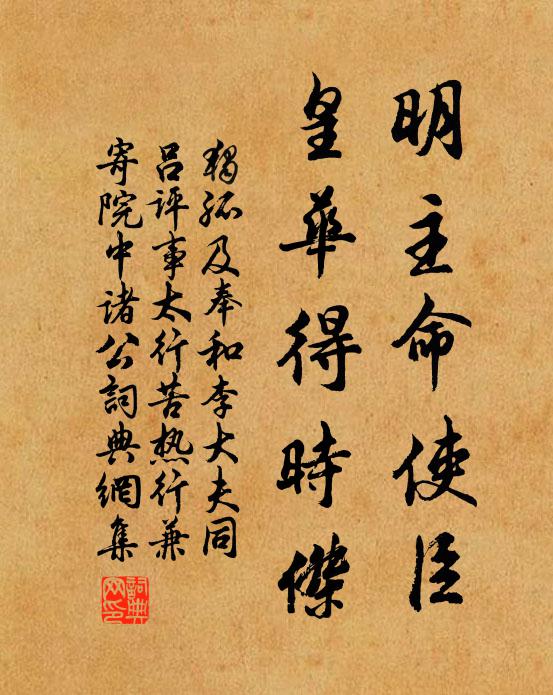 明主命使臣
皇华得時傑
獨孤及奉和李大夫同
吕评事太行苦热行兼
寄院中诸公詞典網集
詞典網印